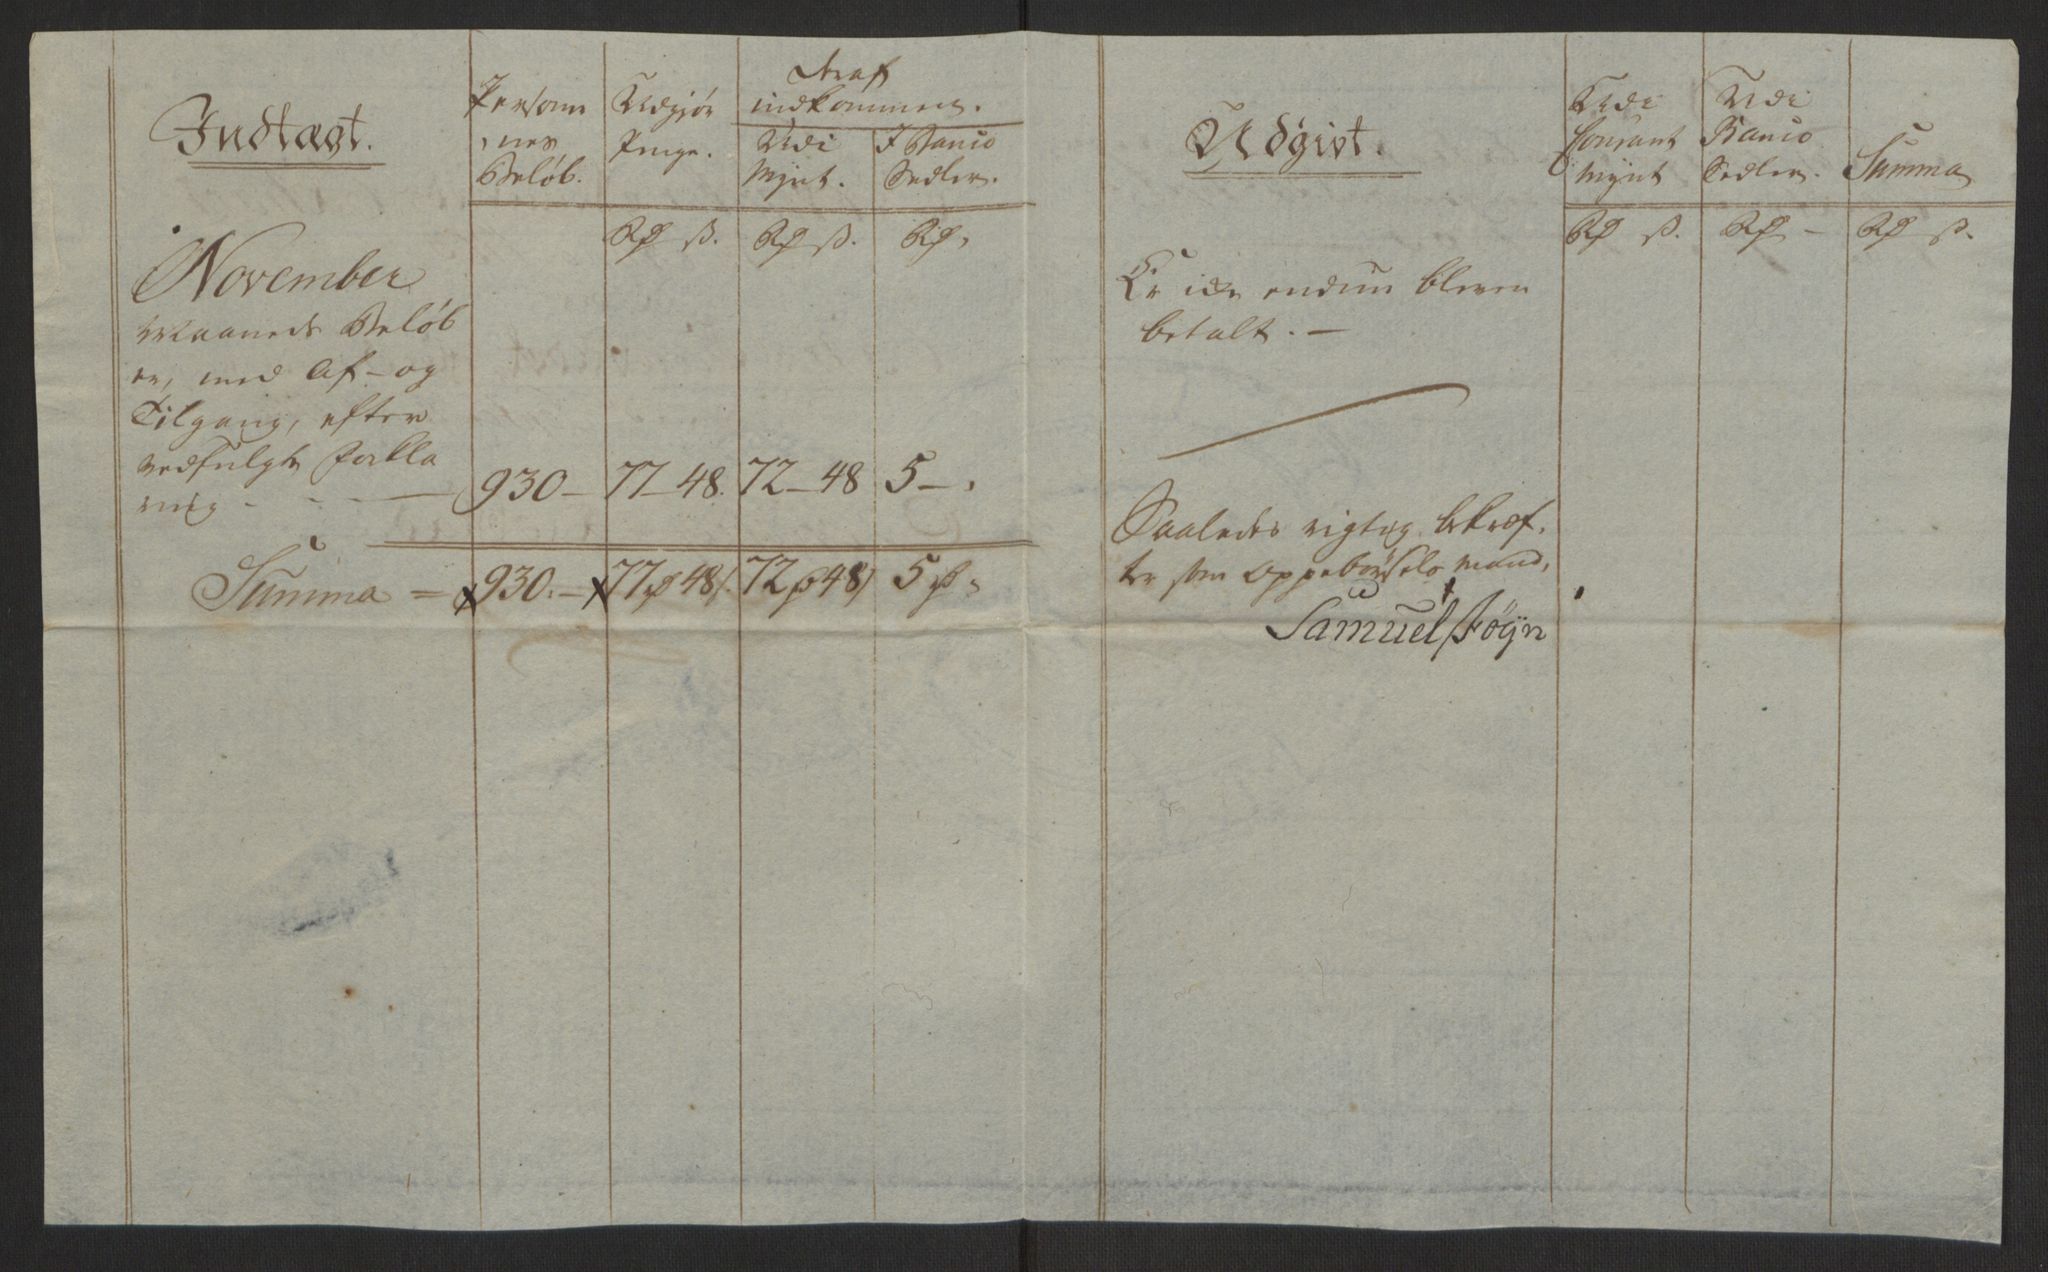 Indtægt.
Person
ernes
Beløb.
Udgjør
Penge.
Deraf
indkommen.
Udi
Mynt.
I Banco
Sedler.
Rd ß.
Rd ß.
Rd
November
Maaneds Beløb
er, med Af- og
Tilgang, efter
vedfulgte Forkla
ring - - - -
930 - 77 - 48. 72 - 48 5 - .
Summa = 930. - 77 rd 48 ß. 72 rd 48 ß 5 rd
Udgivt.
Udi
Courant
Mynt
Udi
Banco
Sedler.
Summa
Rd ß.
Rd -
Rd ß.
Er ikke endnu bleven
betalt. -
Saaledes rigtig bekræf-
ter som Oppebørsels mand,
Samuel Føÿn